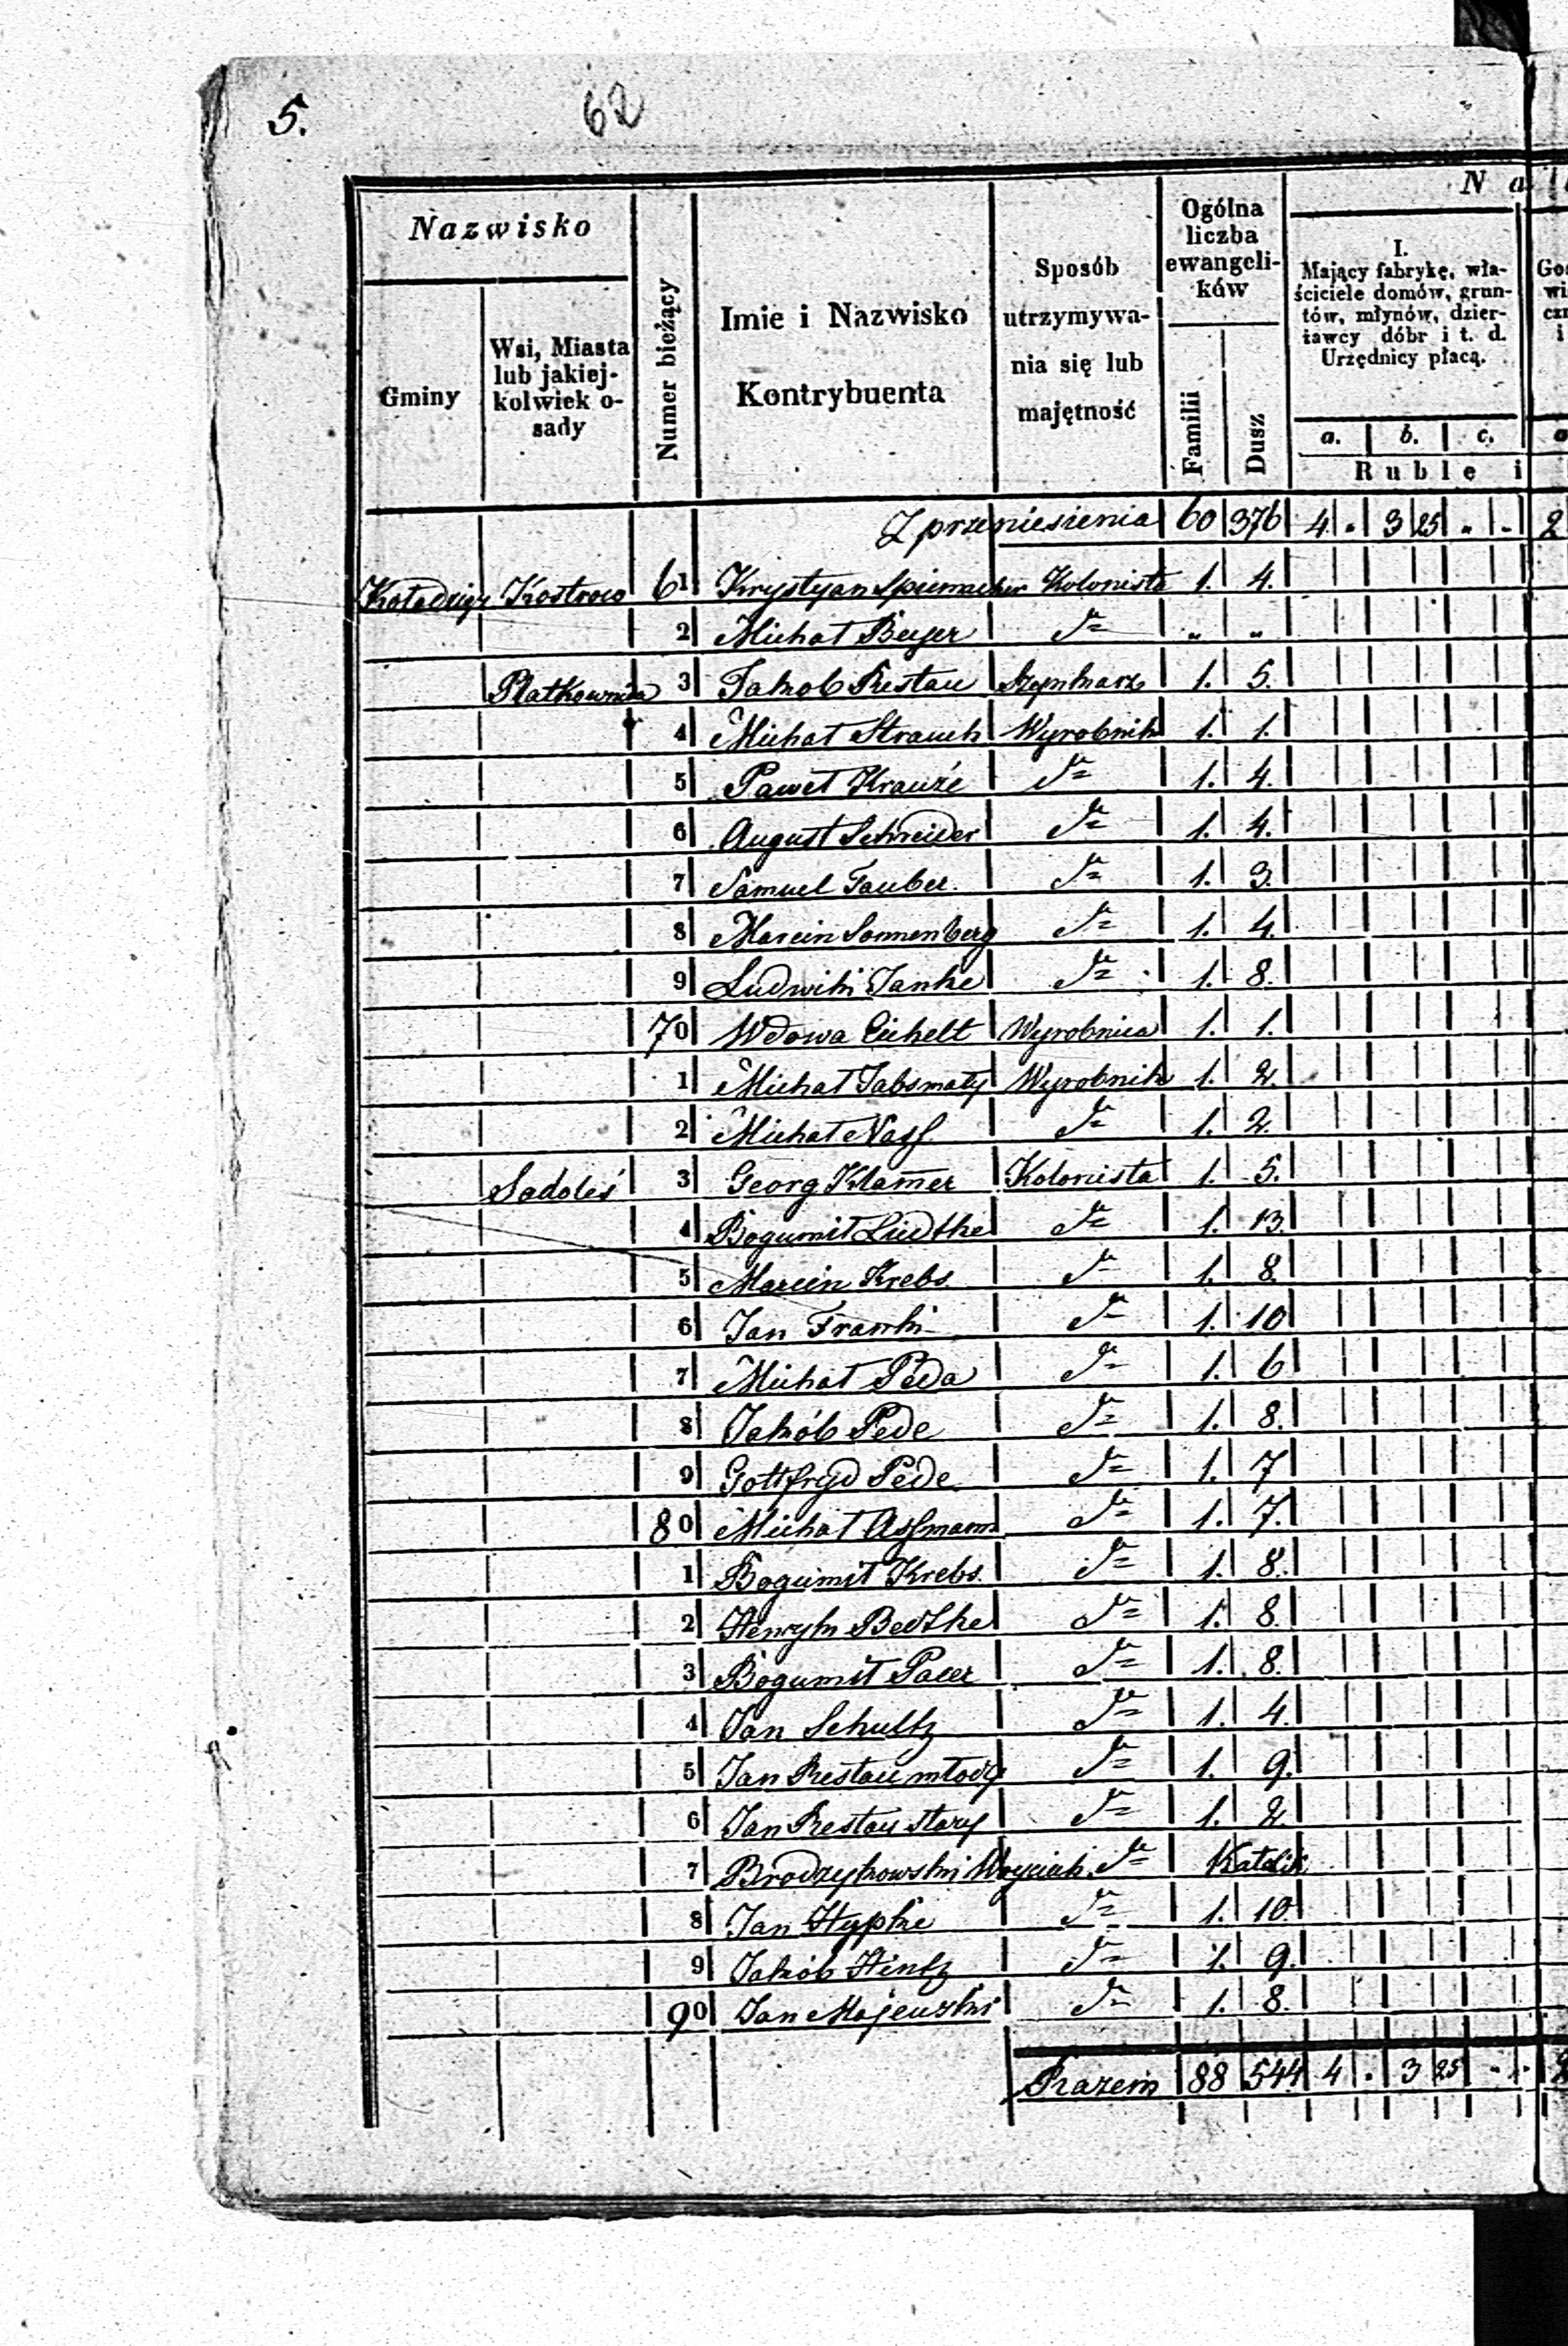 5.
62
Nazwisko
Gminy
Wsi, Miasta lub jakiej-kolwiek o-sady
Numer bieżący
Imie i Nazwisko Kontrybuenta
Sposób utrzymywa-nia się lub majętność
Ogólna liczba ewangeli-ków
Familii
Dusz
N a
I.
Mający fabrykę, wła-
ściciele domów, grun-
tów, młynów, dzier-
żawcy dóbr i t. d.
Urzędnicy płacą.
a. b. c.
Ruble i
Z przeniesienia 60 376 4 . 3 25 . . 2
Kostrowo 61 Krystyan Kolonista 1. 4.
2 Michał Beyer dº " "
Płatkownica 3 Jakob Restau Szynkarz 1. 5.
4 Michał Strauch Wyrobnik 1. 1.
5 Paweł Krauze dº 1. 4.
6 August Schneider dº 1. 4.
7 Samuel Tauber dº 1. 3.
8 Marcin Sonnenberg dº 1. 4.
9 Ludwik Janke dº 1. 8.
70 Wdowa Eichelt Wyrobnica 1. 1.
1 Michał Wyrobnik 1. 2.
2 Michał Nass dº 1. 2.
Sadoleś 3 Georg Klam̄er Kolonista 1. 5.
4 Bogumił Liedtke dº 1. 13.
5 Marcin Krebs dº 1. 8.
6 Jan Franki dº 1. 10
7 Michał Peda dº 1. 6
8 Jakób Pede dº 1. 8.
9 Gottfryd Pede dº 1. 7
80 Michał Assmann dº 1. 7.
1 Bogumił Krebs dº 1. 8.
2 Henryk Bedtke dº 1. 8.
3 Bogumił Pacer dº 1. 8.
4 Jan Schultz dº 1. 4.
5 Jan Restau młody dº 1. 9.
6 Jan Restau stary dº 1. 2.
7 Brodzykowski Woyciech dº Katolik
8 Jan Hypke dº 1. 10
9 Jakób Hintz dº 1. 9.
90 Jan Majewski dº 1. 8.
Razem 88 544 4 . 3 25 . .